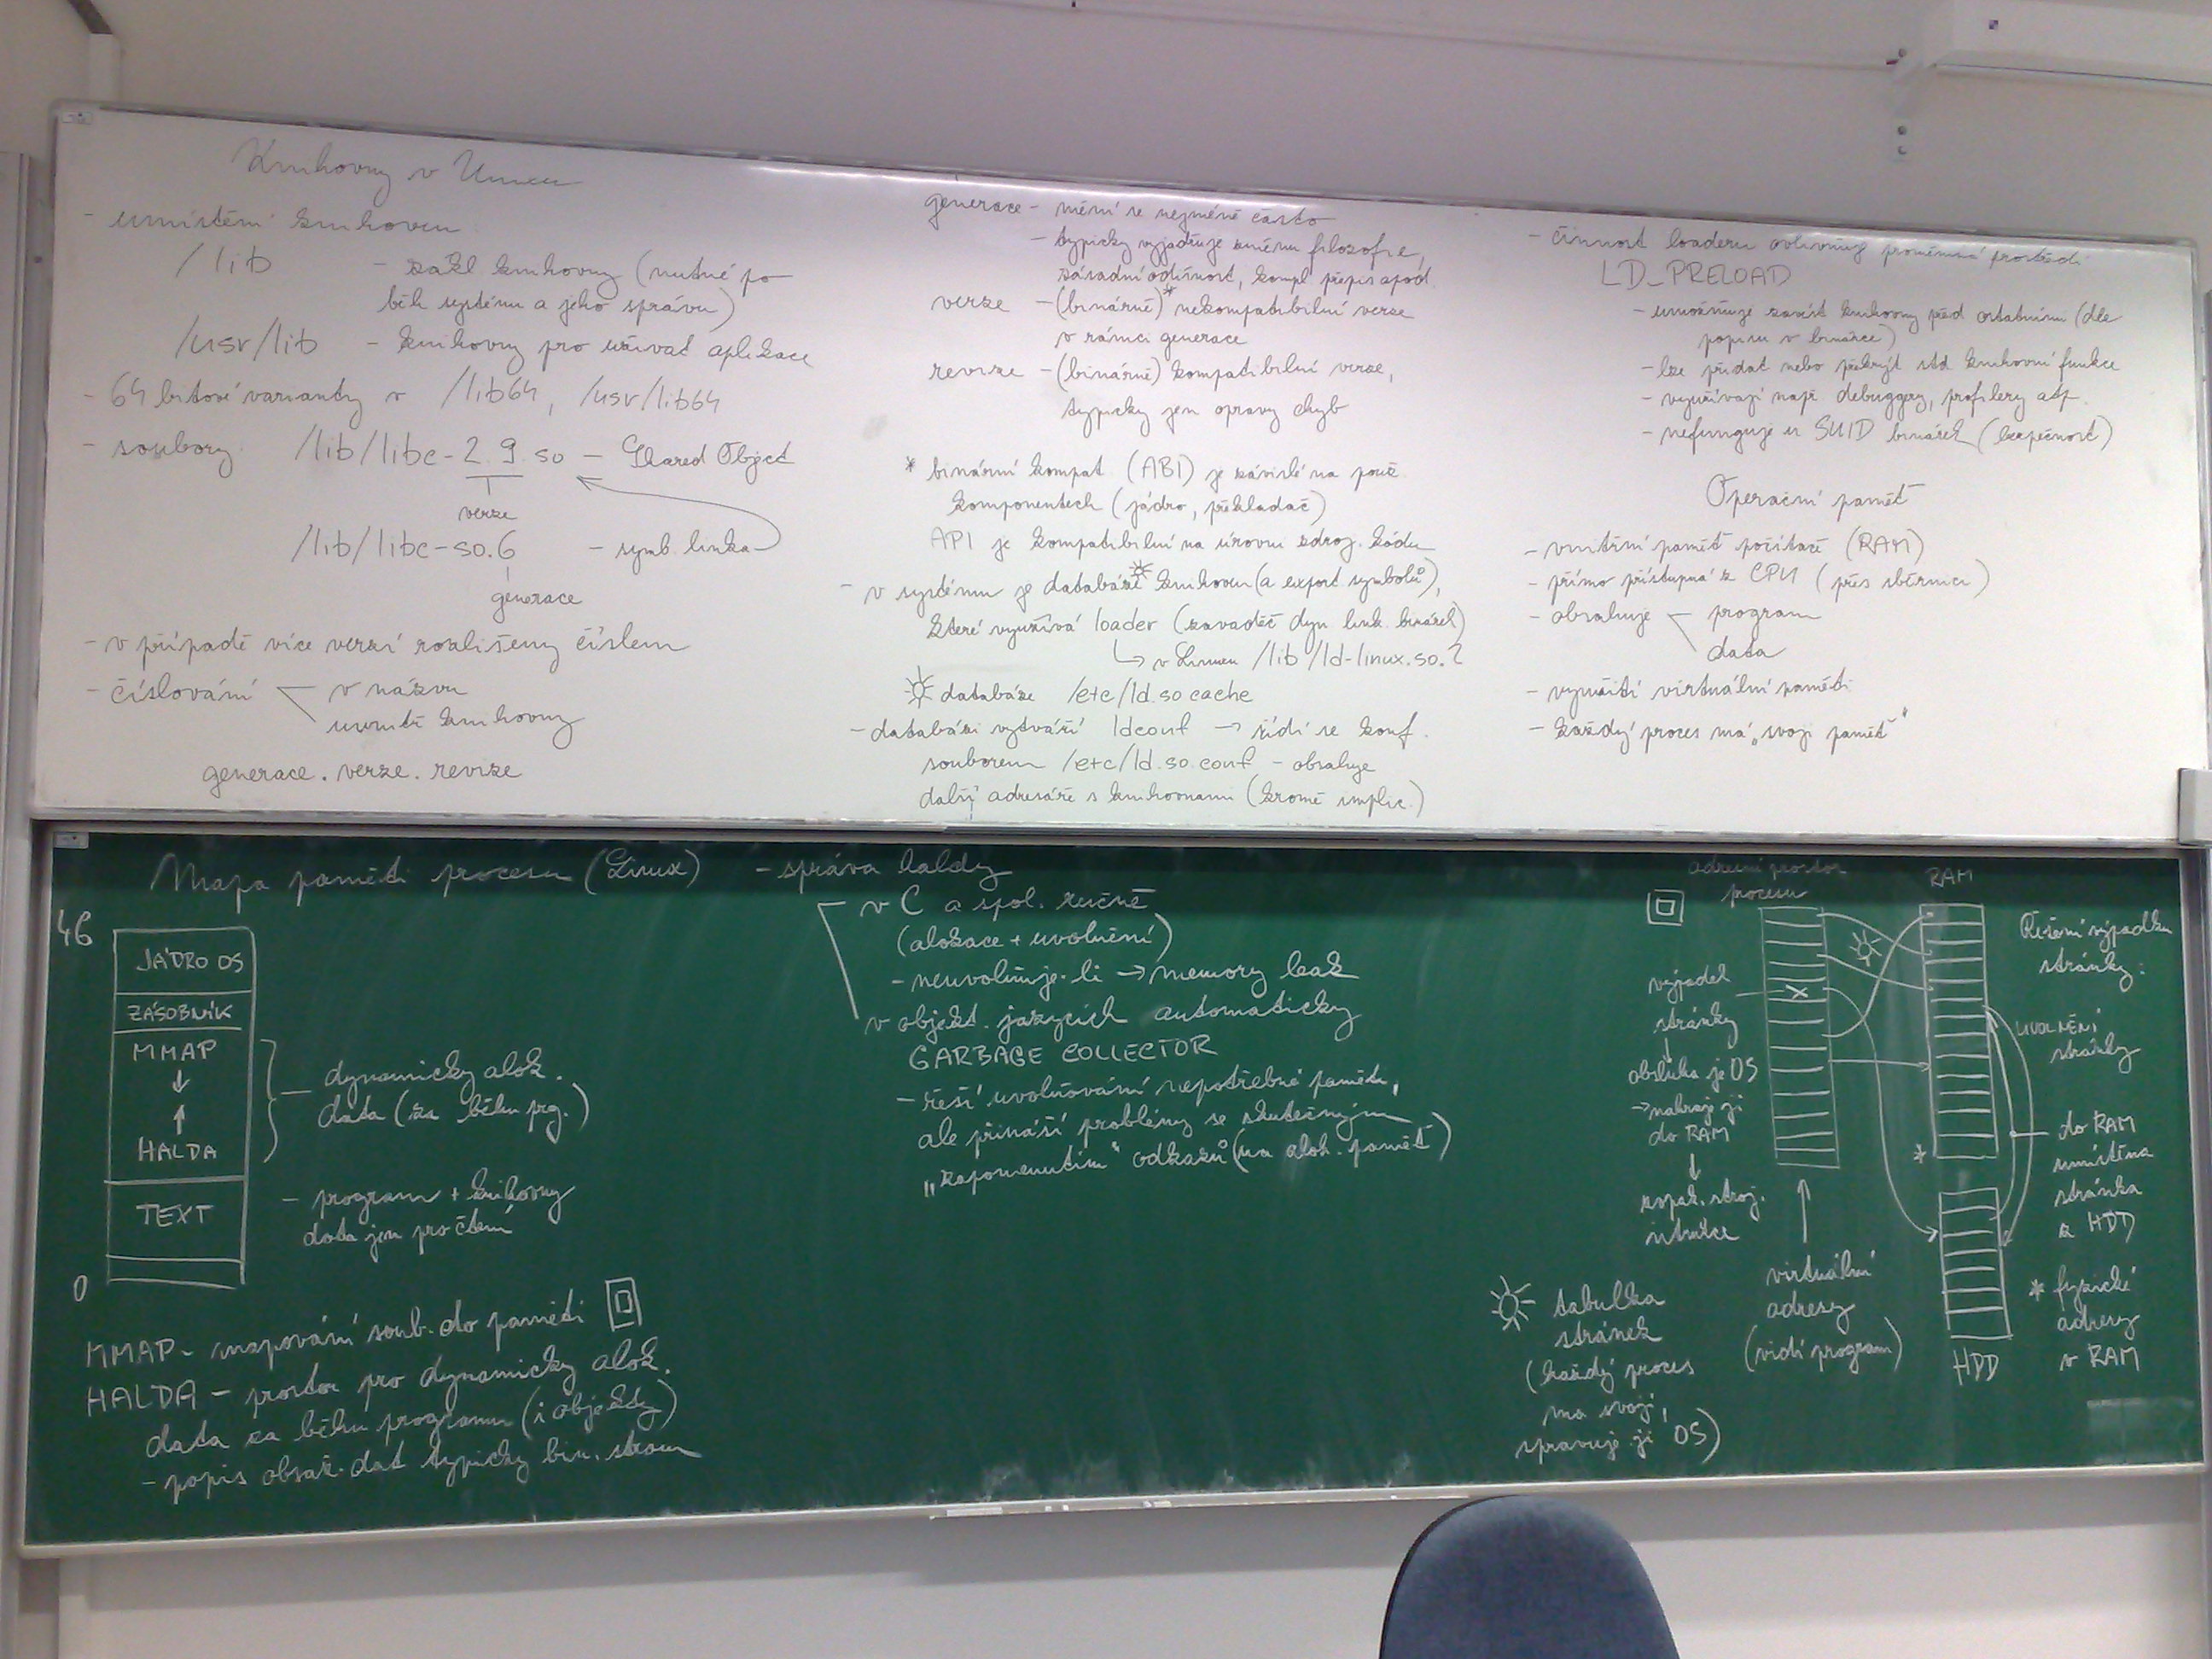 Knihovny v Unixu
- umístění knihoven
/lib - zákl knihovny (nutné po
běh systému a jeho správu)
/usr/lib - knihovny pro uživat aplikace
- 64 bitové varianty v /lib64, /usr/lib64
- soubory /lib/libc-2.9.so - Shared Object
verze
/lib/libc-so.6 - symb. linka
generace
- v případě více verzí rozlišeny číslem
- číslování - v názvu
uvnitř knihovny
generace.verze.revize
generace - mění se nejméně často
- typicky vyjadřuje změnu filozofie,
zásadní odlišnost, kompl přepis apod.
verze - (binárně)* nekompatibilní verze
v rámci generace
revize - (binárně) kompatibilní verze,
typicky jen opravy chyb
* binární kompat (ABI) je závislé na použ.
komponentech (jádro, překladač)
API je kompatibilní na úrovni zdroj. kódu
- v systému je databáze knihoven (a export symbolů),
které využívá loader (zavaděč dyn link. binárek)
↳ v Linuxu /lib/ld-linux.so.2
☼ databáze /etc/ld.so.cache
- databázi vytváří ldconf → řídí se konf.
souborem /etc/ld.so.conf - obsahuje
další adresáře s knihovnami (kromě implic.)
- činnost loaderu ovlivňuje proměnná prostředí
LD_PRELOAD
- umožňuje zavést knihovny před ostatními (dle
popisu v binárce)
- lze přidat nebo překrýt std knihovní funkce
- využívají např. debuggery, profilery atp.
- nefunguje u SUID binárek (bezpečnost)
Operační paměť
- vnitřní paměť počítače (RAM)
- přímo přístupná z CPU (přes sběrnici)
- obsahuje - program
data
- využití virtuální paměti
- každý proces má „svoji paměť“
Mapa paměti procesu (Linux)
4G
JÁDRO OS
ZÁSOBNÍK
MMAP
↓
↑
HALDA
TEXT
0
- dynamicky alok.
data (za běhu prg.)
- program + knihovny
data jen pro čtení
MMAP - mapování soub. do paměti
HALDA - prostor pro dynamicky alok.
data za běhu programu (i objekty)
- popis obsaž. dat typicky bin. strom
- správa haldy
v C a spol. ručně
(alokace + uvolnění)
- neuvolňuje-li → memory leak
v objekt. jazycích automaticky
GARBAGE COLLECTOR
- řeší uvolňování nepotřebné paměti,
ale přináší problémy se skutečným
„zapomenutím“ odkazů (na alok. paměť)
adresní prostor
procesu
RAM
výpadek
stránky
obsluha je OS
→ nahraje ji
do RAM
↓
zopak. stroj.
intrukce
virtuální
adresy
(vidí program)
HDD
☼ tabulka
stránek
(každý proces
má svoji,
spravuje ji OS)
Řešení výpadku
stránky:
UVOLNĚNÍ
stránky
do RAM
umístěna
stránka
z HDD
* fyzické
adresy
v RAM